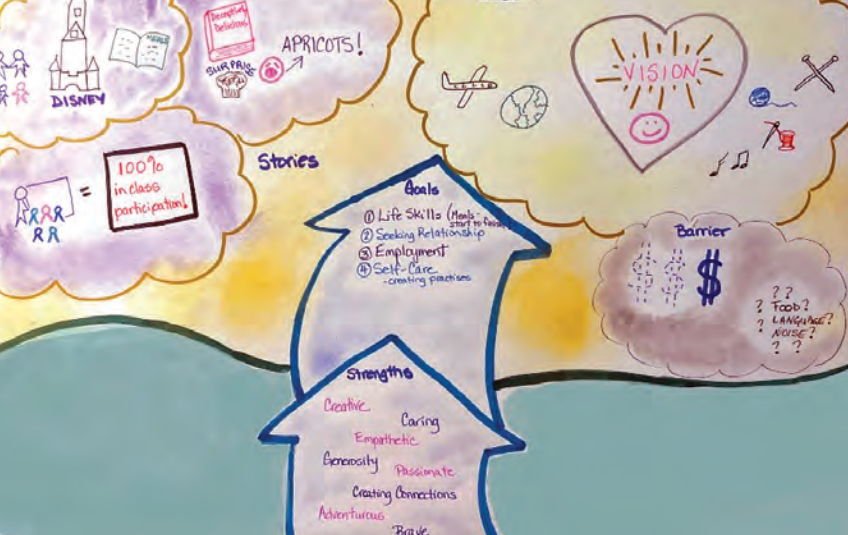 MEALS
DISNEY
Deceptively
Delicious
SURPRISE
APRICOTS!
VISION
=
100%
in class
participation!
Stories
Goals
① Life Skills (Meals -
start to finish)
② Seeking Relationship
③ Employment
④ Self-Care
-creating practises
Barrier
$
? ?
? FOOD?
? LANGUAGE?
? NOISE?
? ?
Strengths
Creative
Caring
Empathetic
Generosity
Passionate
Creating Connections
Adventurous
Brave